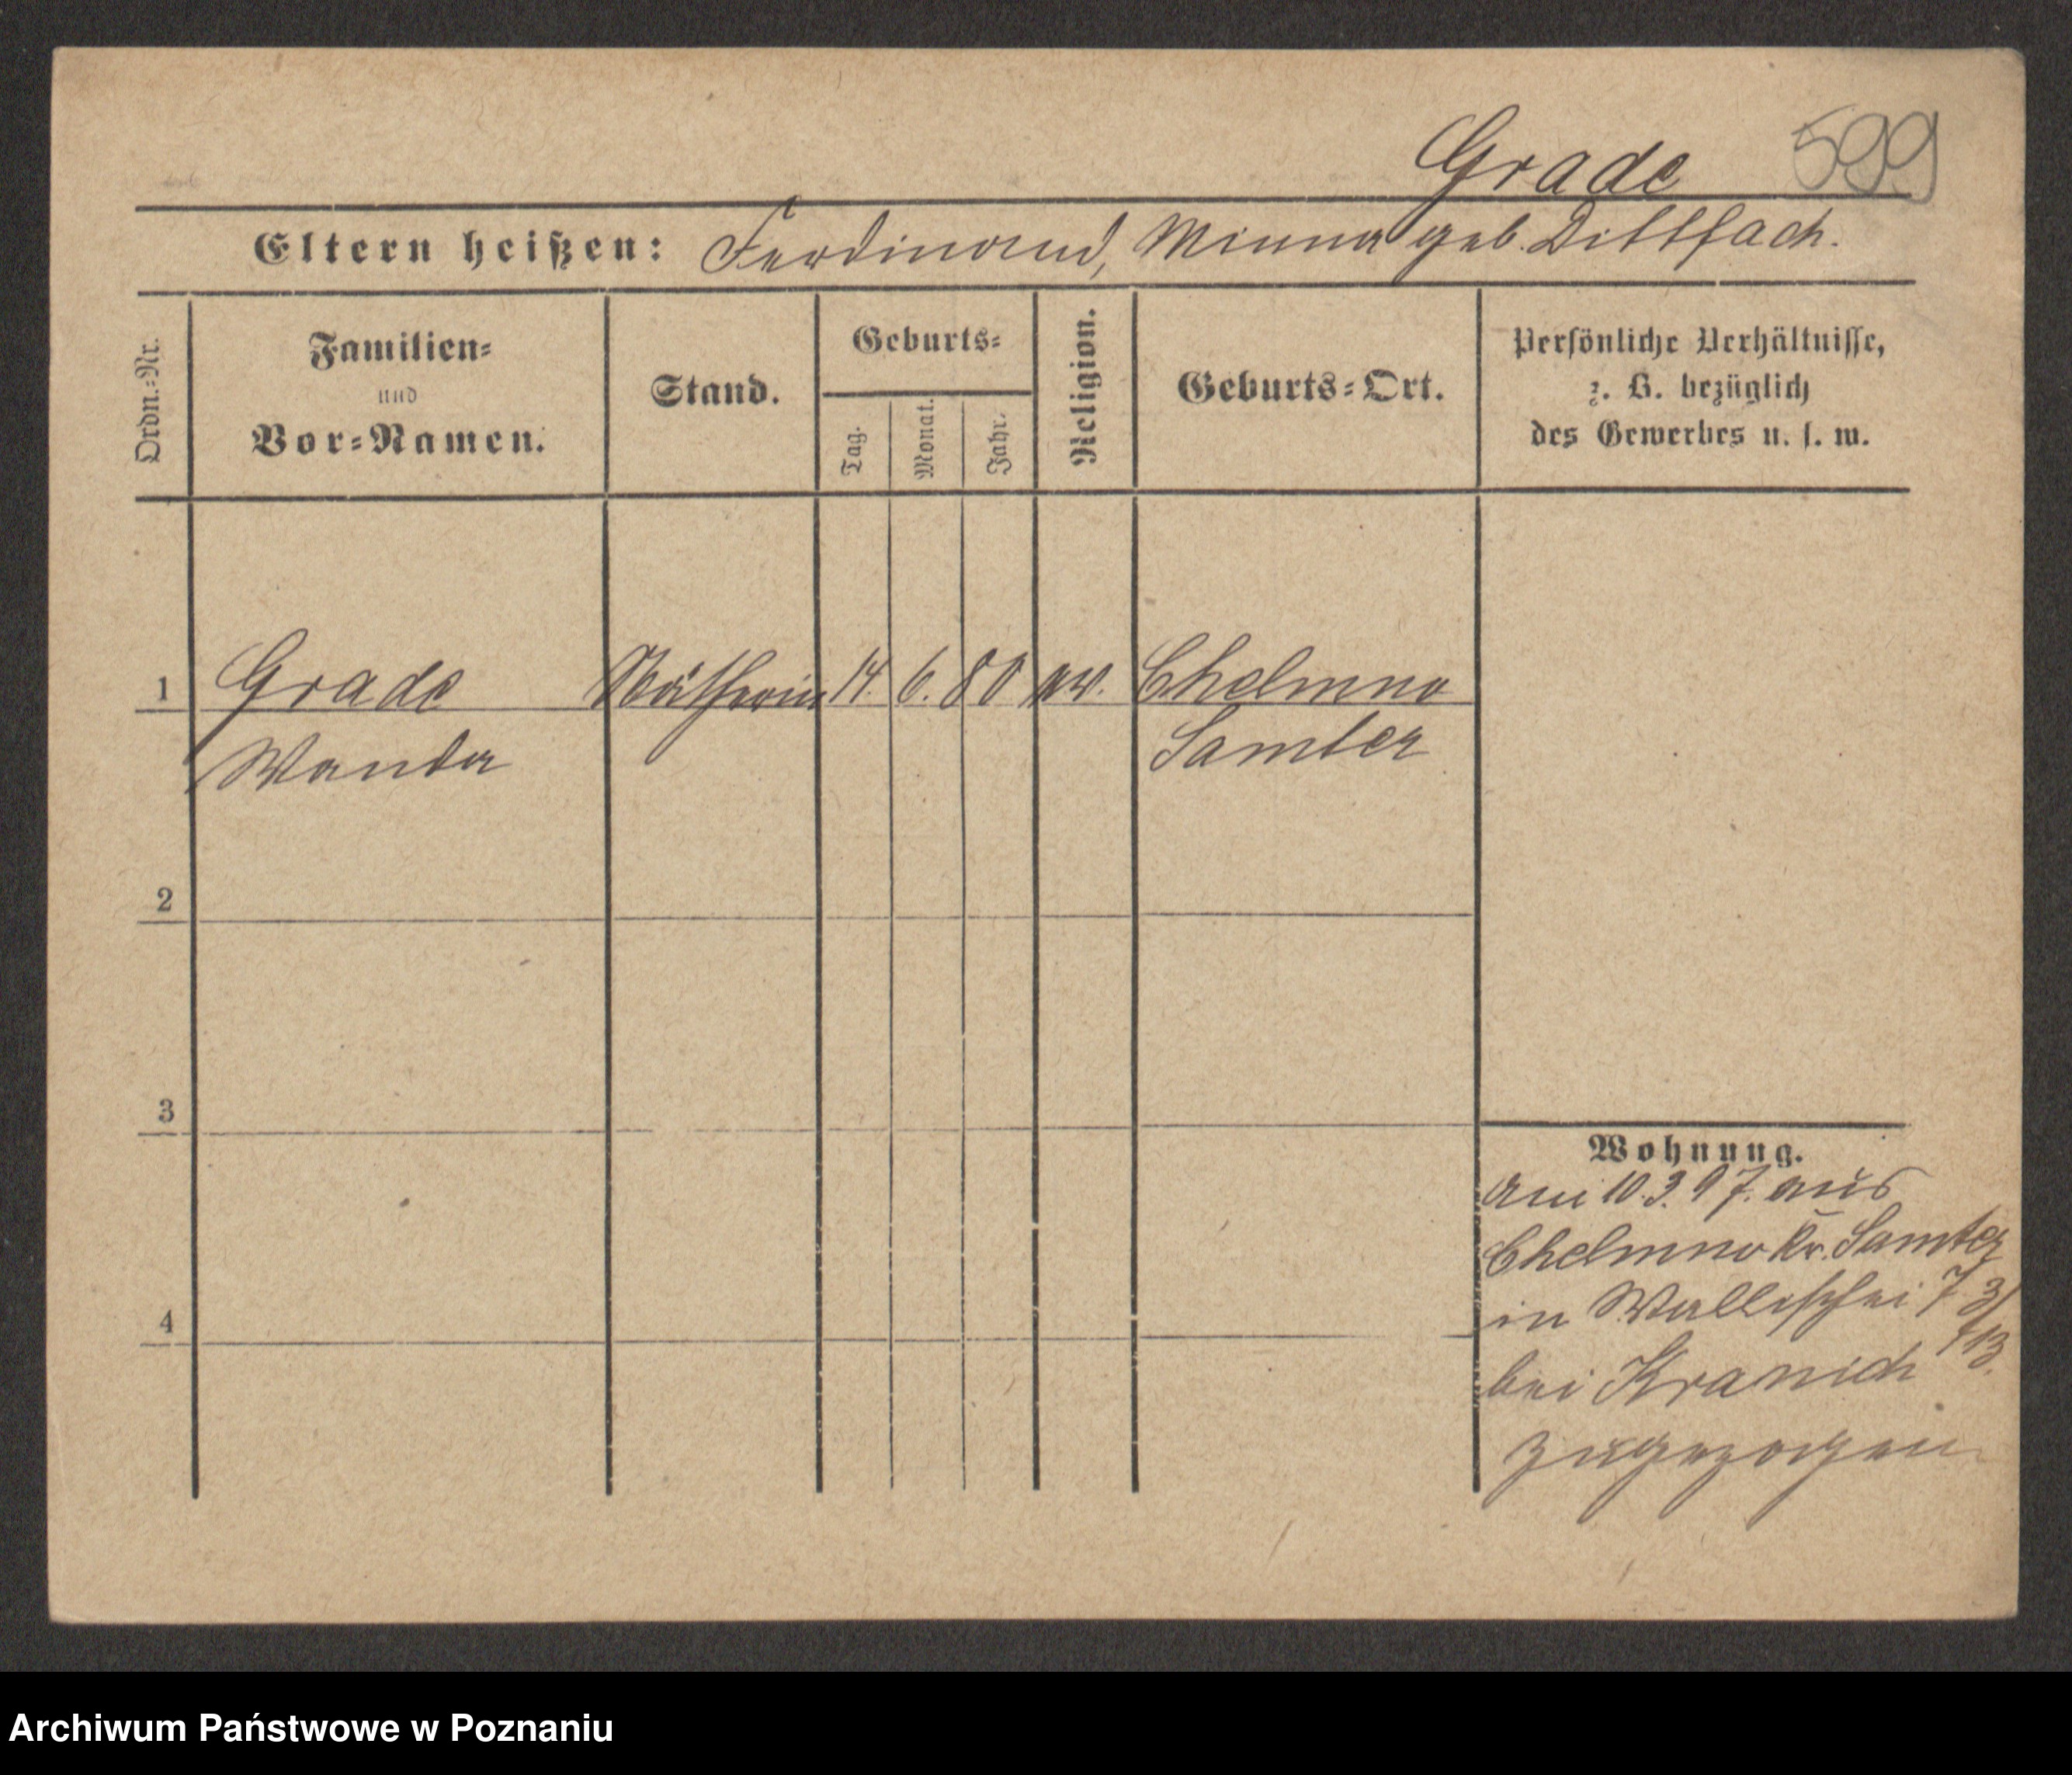 Grade 599
Eltern heißen: Ferdinand, Minna geb. Dittfach.
Ordn.=Nr.
Familien=
und
Vor=Namen.
Stand.
Geburts=
Tag.
Monat.
Jahr.
Religion.
Geburts=Ort.
Persönliche Verhältnisse,
z. B. bezüglich
des Gewerbes u. s. w.
1 Grade Nätherin 14. 6. 80 ev. Chelmno
Wanda Samter
2
3
4
Wohnung.
am 10.3.97. aus
Chelmno Kr. Samter
in Wallischei 73/
bei Kranich
zugezogen
Archiwum Państwowe w Poznaniu